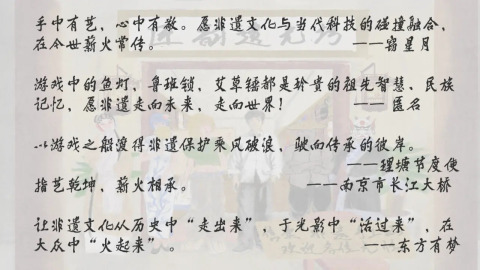 手中有艺，心中有敬。愿非遗文化与当代科技的碰撞融合，
在今世薪火常传。 ——窃星月
游戏中的鱼灯、鲁班锁，艾草镭都是珍贵的祖先智慧、民族
记忆，愿非遗走向未来，走向世界！ ——匿名
以游戏之船渡得非遗保护乘风破浪，驶向传承的彼岸。
——瞿塘节度使
指艺乾坤，薪火相承。 ——南京市长江大桥
让非遗文化从历史中“走出来”，于光影中“活过来”，在
大众中“火起来”。 ——东方有梦